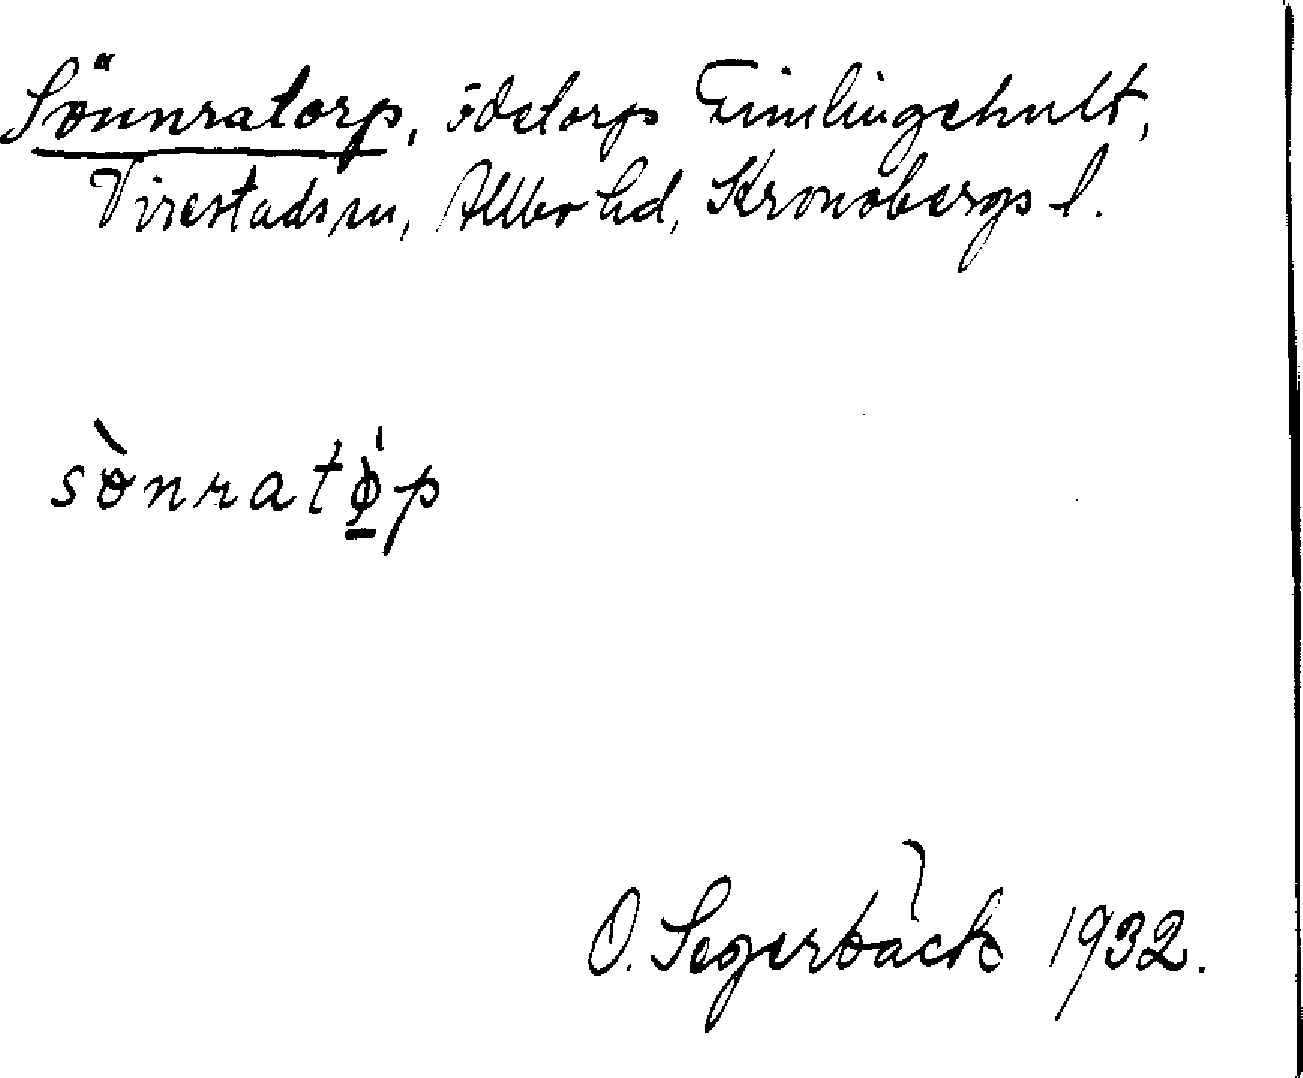 Sönnratorp, ödetorp Fimlingehult,
Virestads sn, Allbo hd, Kronobergs l.
sònratǿp
O. Segerbäck 1932.